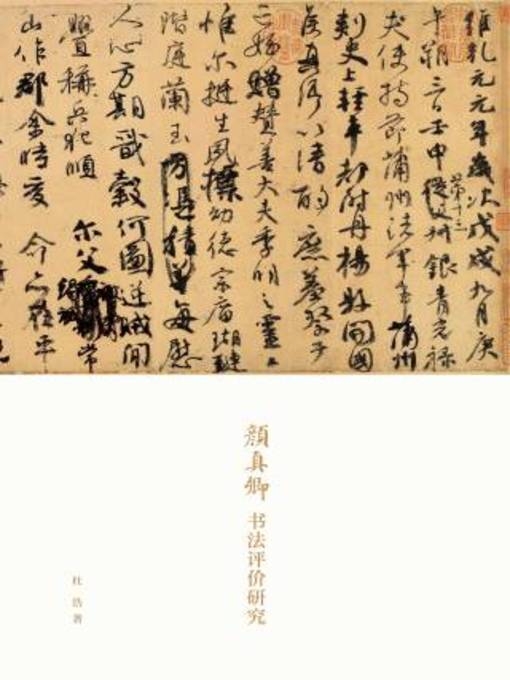 維乾元元年歲次戊戌九月庚
午朔三日壬申第十三叔銀青光祿
夫使持節蒲州諸軍事蒲州
刺史上輕車都尉丹楊縣開國
侯真卿以清酌庶羞祭于
亡姪贈贊善大夫季明之靈曰
惟爾挺生夙標幼德宗廟瑚璉
階庭蘭玉方憑積善每慰
人心方期戩穀何圖逆賊間
釁稱兵犯順爾父常
山作郡余時受命亦在平
顏真卿
书法评价研究
杜浩著